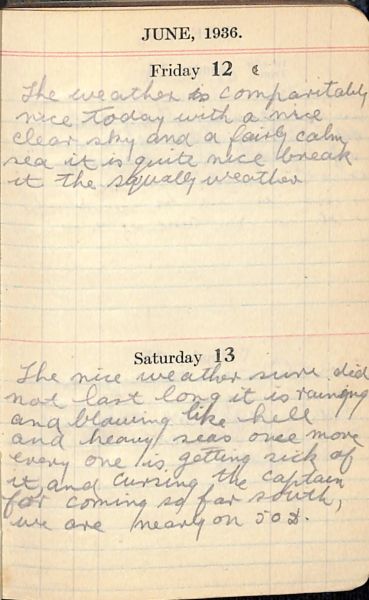 JUNE, 1936.
Friday 12 ☾
The weather is comparitably
nice today with a nice
clear sky and a fairly calm
sea it is quite nice break
it the squally weather
Saturday 13
The nice weather sure did
not last long it is raining
and blowing like hell
and heavy seas once more
every one is getting sick of
it and cursing the captain
for coming so far south,
we are nearly on 50